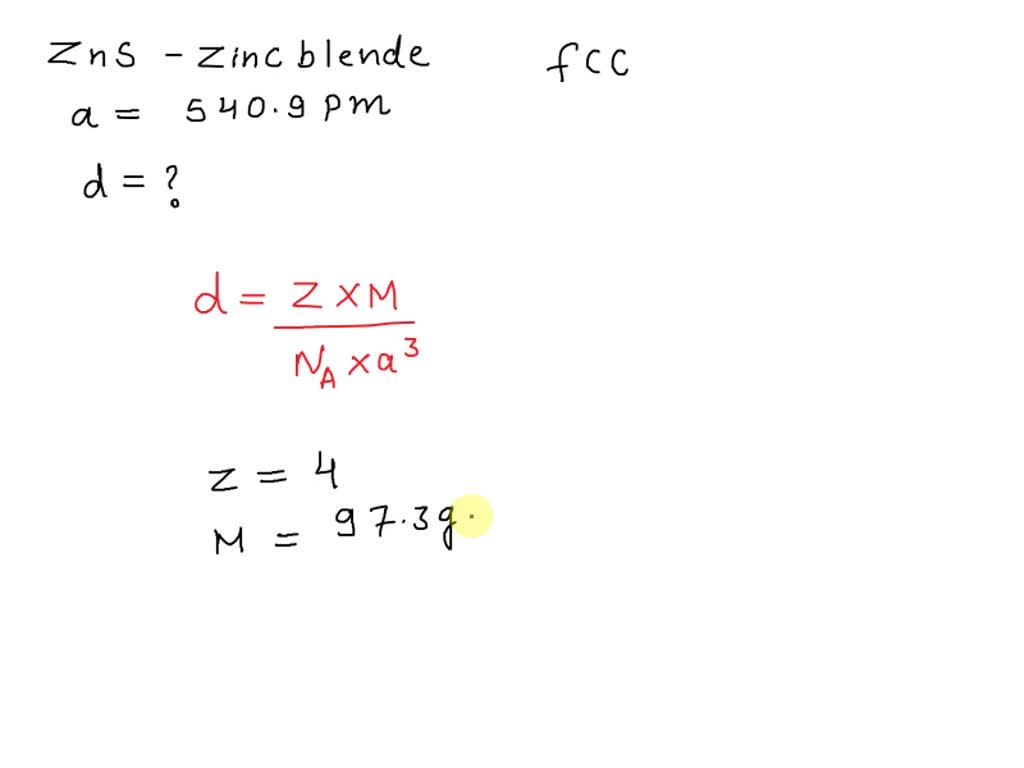 ZnS - Zinc blende fcc
a = 540.9 pm
d = ?
d = Z × M
N_A × a³
Z = 4
M = 97.3g.